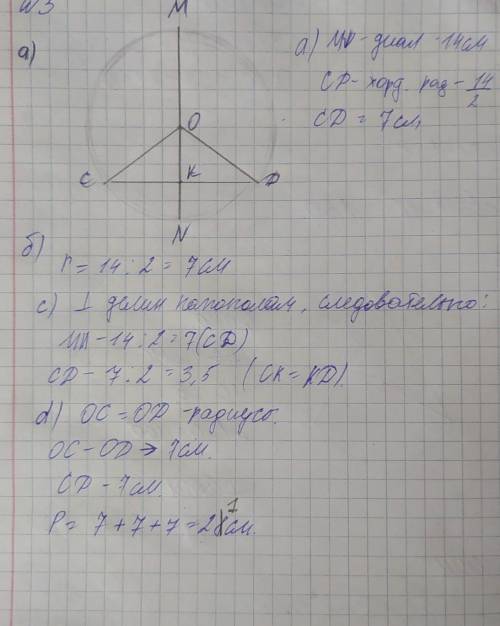 N3
а)
M
O
C
K
D
N
а) MN - диам - 14 см
CD - хорд. рад - 14/2
CD = 7 см,
б)
r = 14 : 2 = 7 см
c) ⊥ делит напополам, следовательно:
MN - 14 : 2 = 7 (CD)
CD - 7 : 2 = 3,5 (CK = KD).
d) OC = OD - радиусы.
OC - OD → 7 см.
CD - 7 см
P = 7 + 7 + 7 = 21 см.